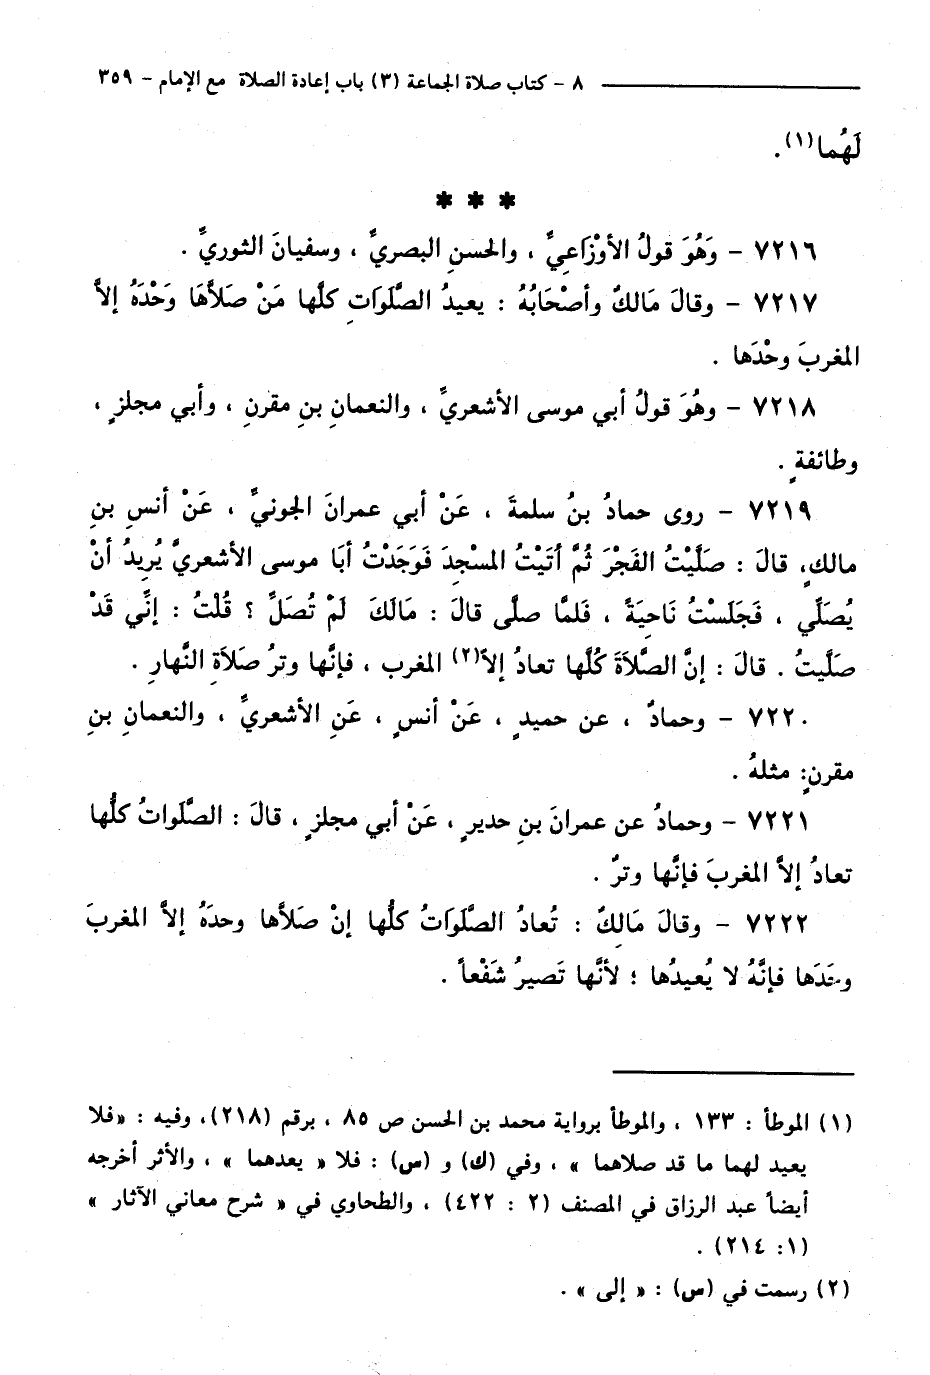 ٨ - كتاب صلاة الجماعة (٣) باب إعادة الصلاة مع الإمام - ٣٥٩
لَهُما(١).
* * *
٧٢١٦ - وَهُوَ قولُ الأوْزَاعِيِّ ، والحسنِ البصريِّ ، وسفيانَ الثوريِّ .
٧٢١٧ - وقالَ مَالكٌ وأصْحَابُهُ : يعيدُ الصَّلَوَاتِ كلَّها مَنْ صَلاَّهَا وَحْدَهُ إلاَّ
المغربَ وحْدَها .
٧٢١٨ - وهُوَ قولُ أبي موسى الأشعريِّ ، والنعمانِ بنِ مقرنِ ، وأبي مجلزٍ ،
وطائفةٍ .
٧٢١٩ - روى حمادُ بنُ سلمةَ ، عَنْ أبي عمرانَ الجونيِّ ، عَنْ أنسِ بنِ
مالكٍ، قالَ : صَلَّيْتُ الفَجْرَ ثُمَّ أتَيْتُ المسْجِدَ فَوَجَدْتُ أبَا موسى الأشعريَّ يُرِيدُ أنْ
يُصَلِّي ، فَجَلَسْتُ نَاحِيَةً ، فَلمَّا صلَّى قالَ : مَالَكَ لَمْ تُصَلِّ ؟ قُلْتُ : إنِّي قَدْ
صلَّيتُ . قالَ : إنَّ الصَّلاَةَ كُلَّها تعادُ إلاَّ(٢) المغرب ، فإنَّها وترُ صَلاَةِ النَّهارِ .
٧٢٢٠ - وحمادٌ ، عن حميدٍ ، عَنْ أنسٍ ، عَنِ الأشعريِّ ، والنعمانِ بنِ
مقرنٍ: مثلهُ .
٧٢٢١ - وحمادُ عن عمرانَ بنِ حديرٍ ، عَنْ أبي مجلزٍ ، قالَ : الصَّلَواتُ كلُّها
تعادُ إلاَّ المغربَ فإنَّها وترٌ .
٧٢٢٢ - وقالَ مَالِكٌ : تُعادُ الصَّلَوَاتُ كلُّها إنْ صَلاَّها وحدَهُ إلاَّ المغربَ
وحَدَها فإنَّهُ لا يُعيدُها ؛ لأنَّها تَصيرُ شَفْعاً .
(١) الموطأ : ١٣٣ ، والموطأ برواية محمد بن الحسن ص ٨٥ ، برقم (٢١٨)، وفيه : « فلا
يعيد لهما ما قد صلاهما » ، وفي (ك) و (س) : فلا « يعدهما » ، والأثر أخرجه
أيضاً عبد الرزاق في المصنف (٢ : ٤٢٢) ، والطحاوي في « شرح معاني الآثار »
(١: ٢١٤) .
(٢) رسمت في (س) : « إلى » .